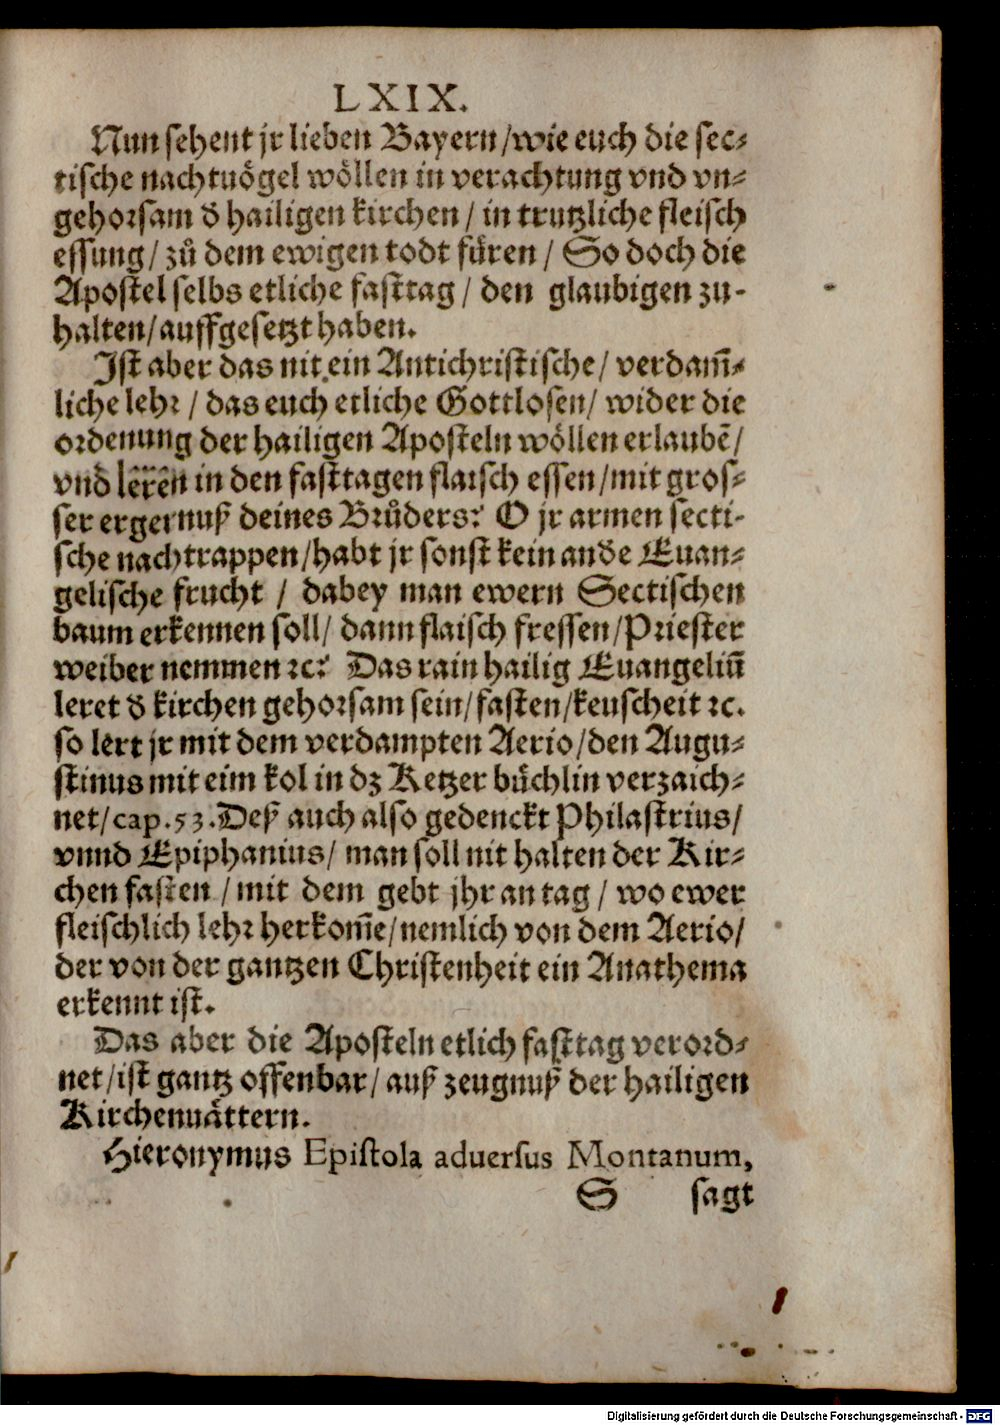 LXIX.
Nun sehent jr lieben Bayern/wie euch die sec-
tische nachtuögel wöllen in verachtung vnd vn-
gehorsam đ hailigen kirchen / in trutzliche fleisch
essung/ zů dem ewigen todt fůren / So doch die
Apostel selbs etliche fasttag / den glaubigen zu-
halten/auffgesetzt haben.
Ist aber das nit ein Antichristische/ verdam̃-
liche lehr / das euch etliche Gottlosen/ wider die
ordenung der hailigen Aposteln wöllen erlaubẽ/
vnd leren in den fasttagen flaisch essen/mit gros-
ser ergernuß deines Brůders? O jr armen secti-
sche nachtrappen/habt jr sonst kein anđe Euan-
gelische frucht / dabey man ewern Sectischen
baum erkennen soll/ dann flaisch fressen/Priester
weiber nemmen ꝛc? Das rain hailig Euangeliũ
leret đ kirchen gehorsam sein/fasten/keuscheit ꝛc.
so lert jr mit dem verdampten Aerio/den Augu-
stinus mit eim kol in dz Ketzer büchlin verzaich-
net/cap.53.Deß auch also gedenckt Philastrius/
vnnd Epiphanius/ man soll nit halten der Kir-
chen fasten / mit dem gebt jhr an tag / wo ewer
fleischlich lehr herkom̃e/nemlich von dem Aerio/
der von der gantzen Christenheit ein Anathema
erkennt ist.
Das aber die Aposteln etlich fasttag verord-
net/ist gantz offenbar/ auß zeugnuß der hailigen
Kirchenuättern.
Hieronymus Epistola aduersus Montanum,
S sagt
Digitalisierung gefördert durch die Deutsche Forschungsgemeinschaft - DFG